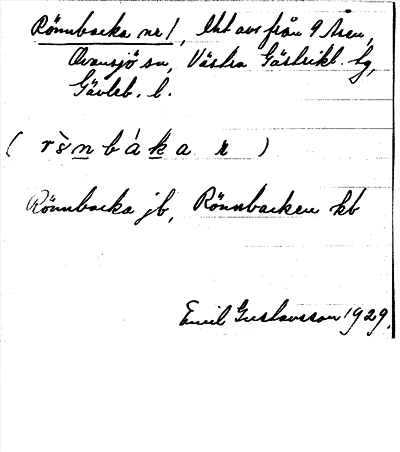 Rönnbacka nr 1, lht avs från 9 Åsen,
Ovansjö sn, Västra Gästrikl. tg,
Gävleb. l.
(rö̀nbákar)
Rönnbacka jb, Rönnbacken kb
Emil Gustavsson 1929.